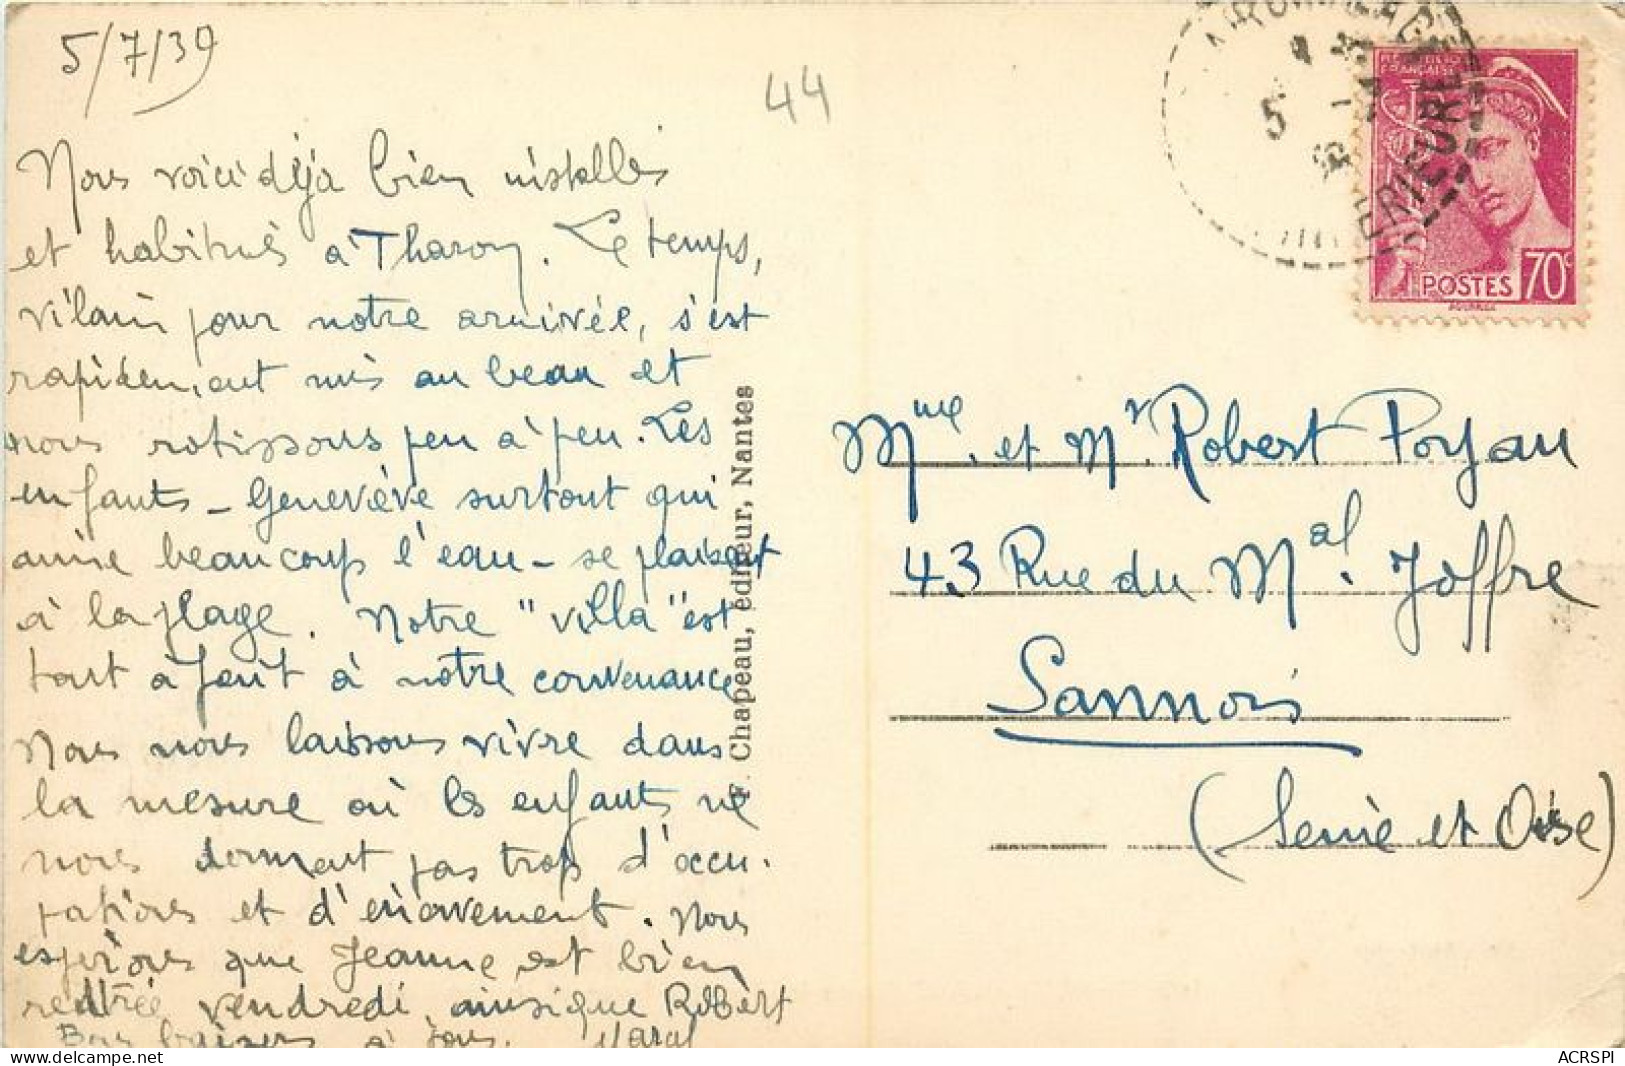 5/7/39
44
Nous voici déjà bien installés
et habitués à Tharon. Le temps,
vilain pour notre arrivée, s'est
rapidement mis au beau et
nous rotissons peu à peu. Les
enfants - Geneviève surtout qui
aime beaucoup l'eau - se plaisent
à la plage. Notre "villa" est
tout à fait à notre convenance
Nous nous laissons vivre dans
la mesure où les enfants ne
nous donnent pas trop d'occu-
pations et d'énervement. Nous
espérons que Jeanne est bien
rentrée vendredi, ainsi que Robert
Bons baisers à tous.
F. Chapeau, éditeur, Nantes
5
RIEURE
FRANÇAISE
POSTES 70c
Mme. et Mr. Robert Poyau
43 Rue du Mal. Joffre
Sannois
(Seine et Oise)
ACRSPI